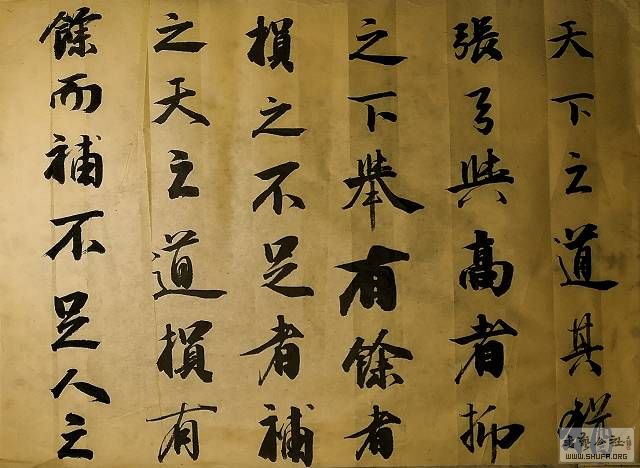 天下之道其猶
張弓與高者抑
之下舉有餘者
損之不足者補
之天之道損有
餘而補不足人之
WWW.SHUFA.ORG